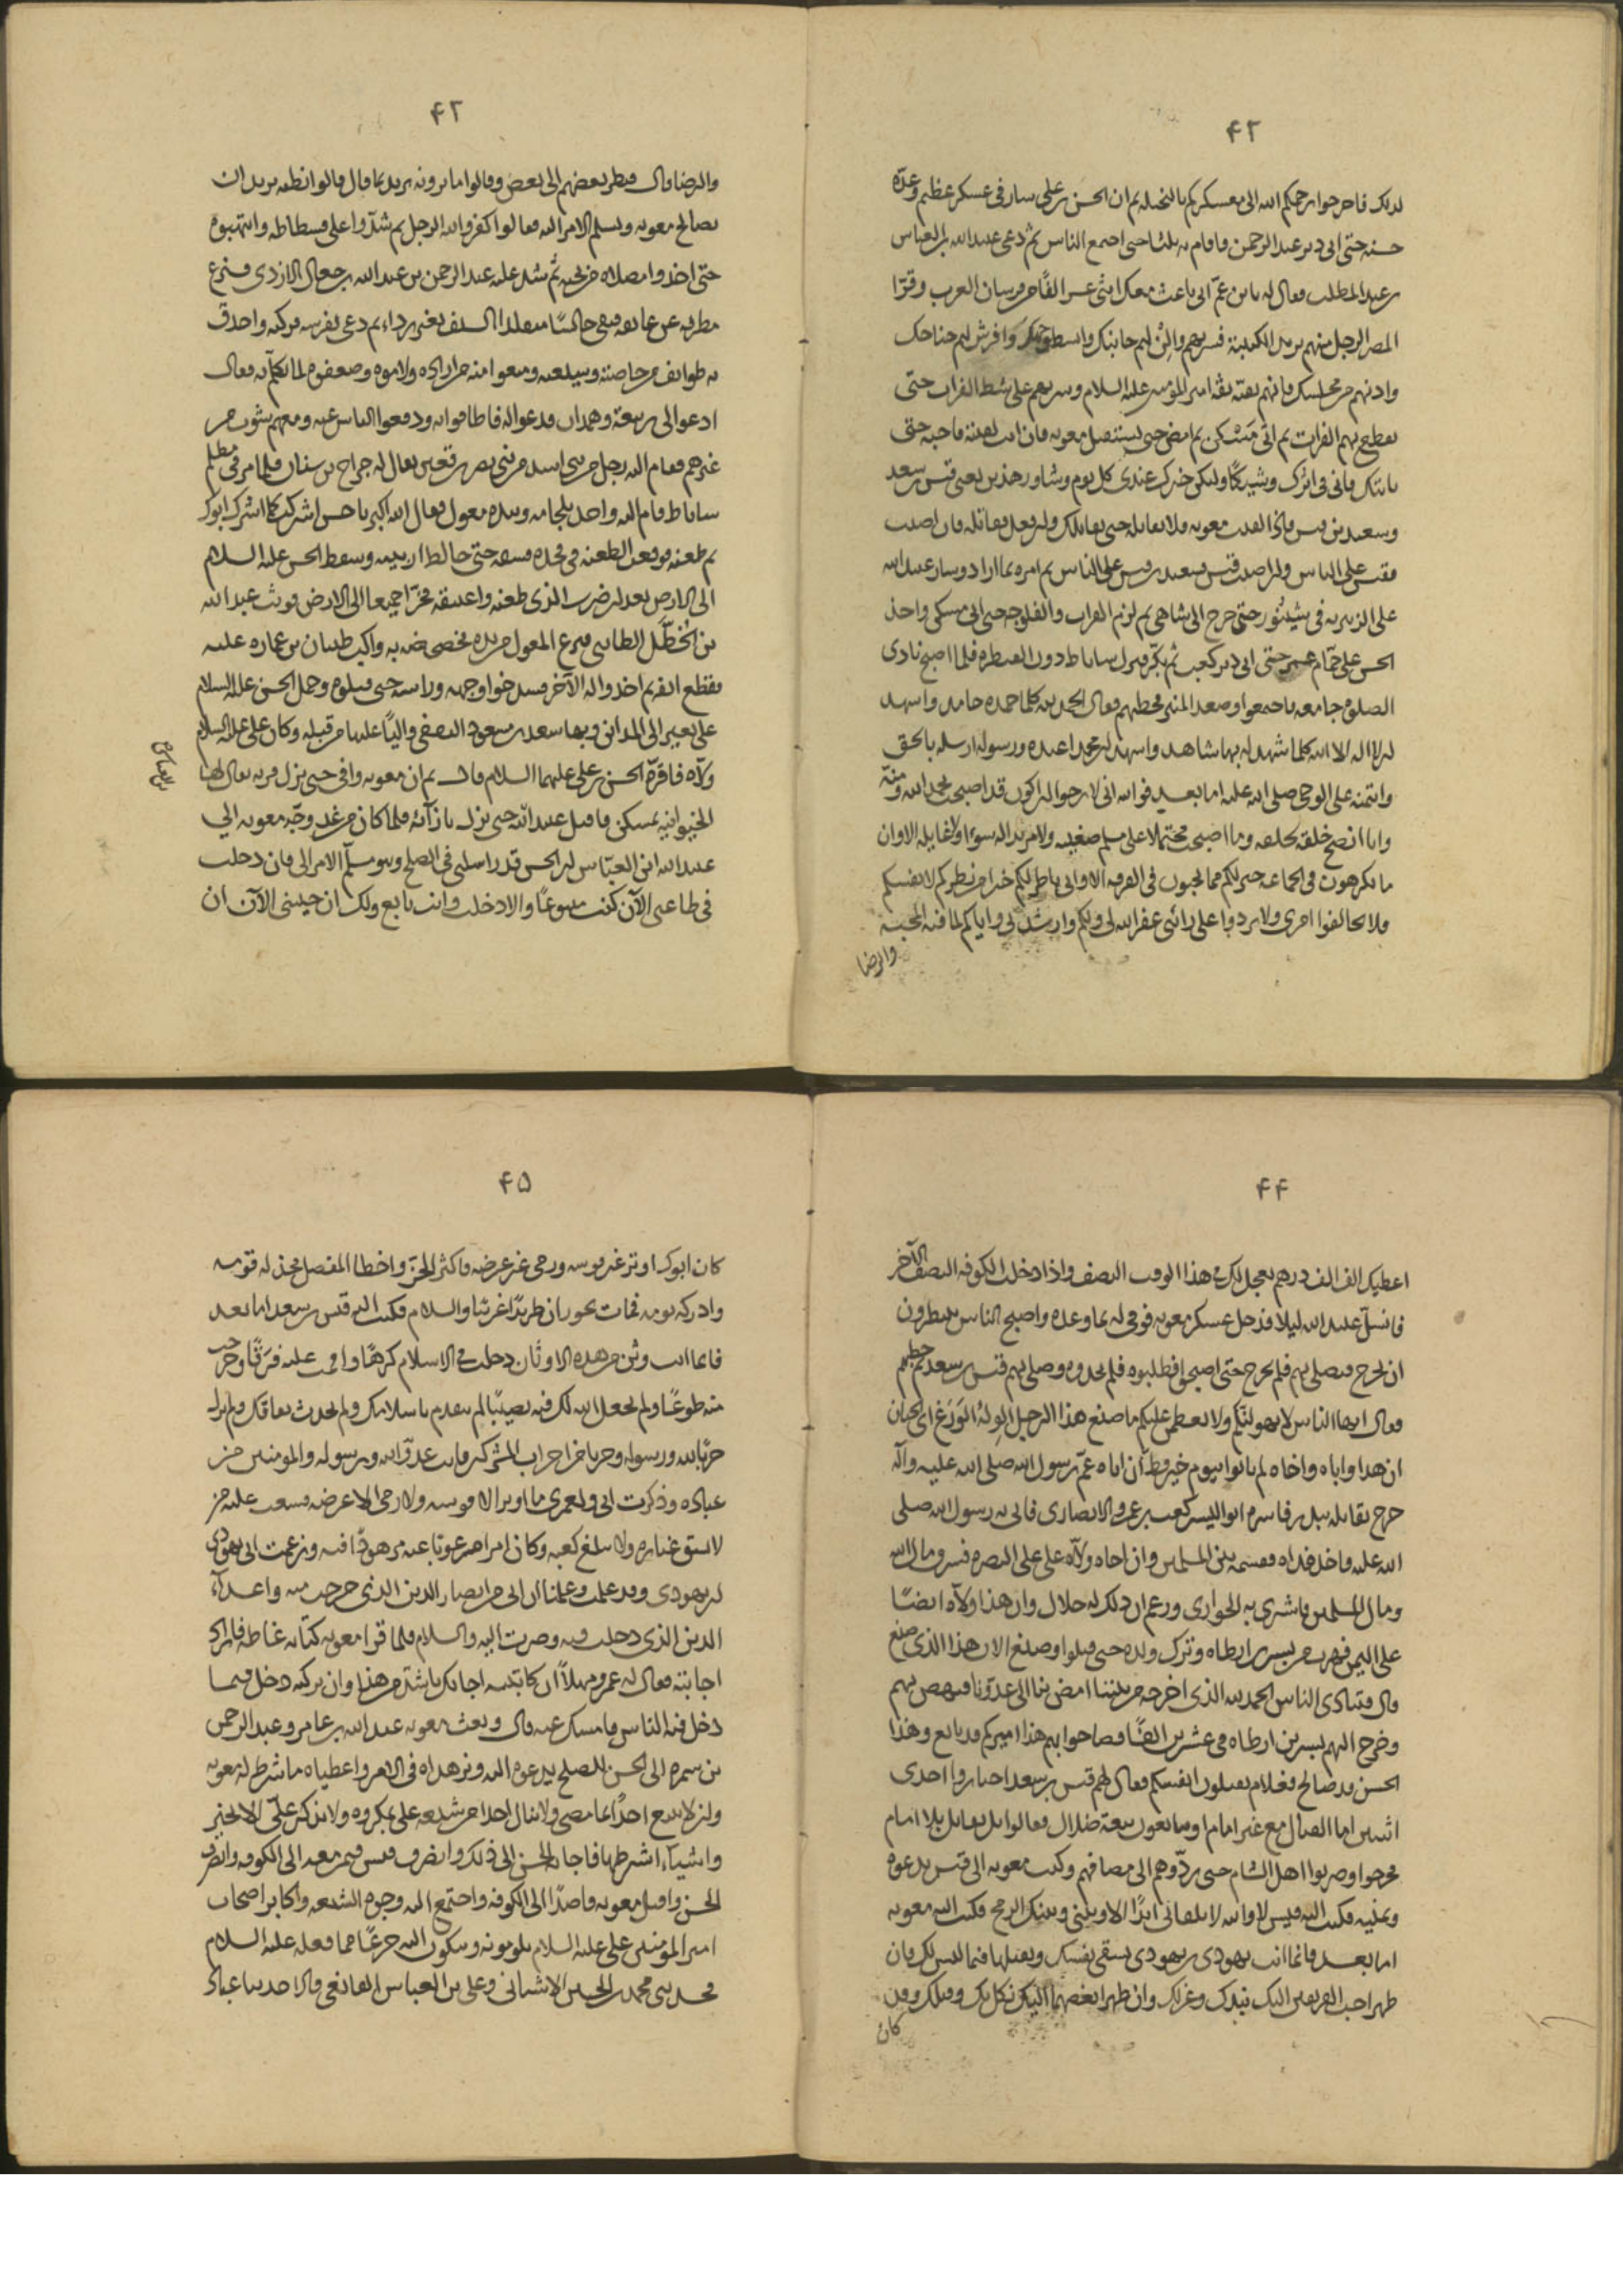 ۴۲
لذلك فاخرجوا رحمكم الله الى معسكركم بالنخيلة ثم ان الحسن بن علي سار في عسكر عظيم وعدة
حسنة حتى اتى دير عبد الرحمن فاقام به ثلثا حتى اجتمع الناس ثم دعى عبيد الله بن العباس
بن عبد المطلب فقال له يا بن عم اني باعث معك اثني عشر الفا من فرسان العرب وقرا
المصر الرجل منهم يريد الكتيبة فسر بهم والن لهم جانبك وابسط وجهك وافرش لهم جناحك
وادنهم من مجلسك فانهم بقية ثقة امير المؤمنين عليه السلام وسر بهم على شط الفرات حتى
تقطع بهم الفرات ثم اتى مسكن ثم امض حتى يستقبل معوية فان انت لقيته فاحبسه حتى
ياتيك فاني في اثرك وشيكا وليكن خبرك عندي كل يوم وشاور هذين يعني قيس بن سعد
وسعيد بن قيس فاذا لقيت معوية فلا تقاتله حتى يقاتلك فان فعل فقاتله فان اصبت
فقيس على الناس وان اصيب قيس فسعيد بن قيس على الناس ثم امره بما اراد وسار عبيد الله
حتى خرج الى شاهي ثم لزم الفرات والفلوجة حتى اتى مسكن واخذ
الحسن على حمام عمر حتى اتى دير كعب ثم بكر فنزل ساباط دون القنطرة فلما اصبح نادى
الصلوة جامعة فاجتمعوا وصعد المنبر فخطبهم فقال الحمد لله كلما حمده حامد واشهد
ان لا اله الا الله كلما شهد له بها شاهد واشهد ان محمدا عبده ورسوله ارسله بالحق
وائتمنه على الوحي صلى الله عليه اما بعد فوالله اني لارجو ان اكون قد اصبحت بحمد الله ومنه
وانا انصح خلقه لخلقه وما اصبحت محتملا على مسلم ضغينة ولا مريدا له سوءا ولا غايلة الا وان
ما تكرهون في الجماعة خير لكم مما تحبون في الفرقة الا واني ناظر لكم خيرا من نظركم لانفسكم
فلا تخالفوا امري ولا تردوا على رائي غفر الله لي ولكم وارشدني واياكم لما فيه المحبة
والرضا
۴۳
والرضا قال فنظر بعضهم الى بعض وقالوا ما ترونه يريد بما قال قالوا نظنه يريد ان
يصالح معوية ويسلم الامر اليه فقالوا كفر والله الرجل ثم شدوا على فسطاطه وانتهبوه
حتى اخذوا مصلاه من تحته ثم شد عليه عبد الرحمن بن عبد الله بن جعال الازدي فنزع
مطرفه عن عاتقه فبقي جالسا متقلدا السيف بغير رداء ثم دعى بفرسه فركبه واحدق
به طوايف من خاصته وشيعته ومنعوا منه من اراده ولاموه وضعفوه لما تكلم به فقال
ادعوا لي ربيعة وهمدان فدعوا له فاطافوا به ودفعوا الناس عنه ومعهم شوب من
غيرهم فقام اليه رجل من بني اسد من بني نصر بن قعين يقال له جراح بن سنان فلما مر في مظلم
ساباط قام اليه واخذ بلجامه وبيده معول فقال الله اكبر يا حسن اشركت كما اشرك ابوك
ثم طعنه فوقعت الطعنة في فخذه فشقه حتى خالط اربيته وسقط الحسن عليه السلام
الى الارض بعد ان ضرب الذي طعنه واعتنقه فخرا جميعا الى الارض فوثب عبد الله
بن الخطل الطائي فنزع المعول من يده فخضخضه به واكب ظبيان بن عمارة عليه
فقطع انفه ثم اخذوا له الآجر فشدخوا وجهه وراسه حتى قتلوه وحمل الحسن عليه السلام
على سرير الى المدائن وبها سعد بن مسعود الثقفي واليا عليها من قبله وكان علي عليه السلام
ولاه فاقره الحسن بن علي عليهما السلام قال ثم ان معوية وافى حتى نزل قرية يقال لها
الحبوبية بمسكن فاقبل عبيد الله حتى نزل بازائه فلما كان من غد وجه معوية الى
عبيد الله ابن العباس ان الحسن قد راسلني في الصلح وهو مسلم الامر الي فان دخلت
في طاعتي الآن كنت متبوعا والا دخلت وانت تابع ولك ان جئتني الآن ان
۴۴
اعطيك الف الف درهم يعجل لك في هذا الوقت النصف واذا دخلت الكوفة النصف الآخر
فانسل عبيد الله ليلا فدخل عسكر معوية فوفى له بما وعده واصبح الناس ينتظرون
ان يخرج فيصلي بهم فلم يخرج حتى اصبحوا فطلبوه فلم يجدوه وصلى بهم قيس بن سعد ثم خطبهم
فقال ايها الناس لا يهولنكم ولا يعظمن عليكم ما صنع هذا الرجل الوله الورع اي الجبان
ان هذا واباه واخاه لم ياتوا بيوم خير قط ان اباه عم رسول الله صلى الله عليه وآله
خرج يقاتله ببدر فاسره ابو اليسر كعب بن عمرو الانصاري فاتى به رسول الله صلى
الله عليه فاخذ فداه فقسمه بين المسلمين وان اخاه ولاه علي على البصرة فسرق مال الله
ومال المسلمين فاشترى به الجواري وزعم ان ذلك له حلال وان هذا ولاه ايضا
على اليمن فهرب من بسر بن ارطاه وترك ولده حتى قتلوا وصنع الان هذا الذي صنع
قال فتنادى الناس الحمد لله الذي اخرجه من بيننا امض بنا الى عدونا فنهض بهم
وخرج اليهم بسر بن ارطاه في عشرين الفا فصاحوا بهم هذا اميركم قد بايع وهذا
الحسن قد صالح فعلام تقتلون انفسكم فقال لهم قيس بن سعد اختاروا احدى
اثنتين اما القتال مع غير امام او تبايعون بيعة ضلال فقالوا بل نقاتل بلا امام
فخرجوا وضربوا اهل الشام حتى ردوهم الى مصافهم وكتب معوية الى قيس يدعوه
ويمنيه فكتب اليه قيس لا والله لا تلقاني ابدا الا وبيني وبينك الرمح فكتب اليه معوية
اما بعد فانما انت يهودي بن يهودي تشقي نفسك وتقتلها فيما ليس لك فان
ظهر احب الفريقين اليك نبذك وعزلك وان ظهر ابغضهما اليك نكل بك وقتلك وقد
كان
۴۵
كان ابوك اوتر غير قوسه ورمى غير غرضه فاكثر الحز واخطا المفصل فخذله قومه
وادركه يومه فمات بحوران طريدا غريبا والسلام فكتب اليه قيس بن سعد اما بعد
فانما انت وثن من هذه الاوثان دخلت في الاسلام كرها واقمت عليه فرقا وخرجت
منه طوعا ولم يجعل الله لك فيه نصيبا لم يقدم اسلامك ولم يحدث نفاقك ولم تزل
حربا لله ورسوله وحزبا من احزاب المشركين فانت عدو الله ورسوله والمؤمنين من
عباده وذكرت ابي ولعمري ما اوتر الا قوسه ولا رمى الا غرضه فشغب عليه من
لا تشق غباره ولا تبلغ كعبه وكان امرا مرغوبا عنه مزهودا فيه وزعمت اني يهودي
بن يهودي وقد علمت وعلم الناس اني من انصار الدين الذي خرجت منه واعداء
الدين الذي دخلت فيه وصرت اليه والسلام فلما قرا معوية كتابه غاظه فاراد
اجابته فقال له عمرو مهلا ان كاتبته اجابك باشد من هذا وان تركته دخل فيما
دخل فيه الناس فامسك عنه قال وبعث معوية عبد الله بن عامر وعبد الرحمن
بن سمرة الى الحسن للصلح يدعوه اليه وزهداه في الامر واعطياه ما شرط له معوية
وان لا يتبع احدا بما مضى ولا ينال احدا من شيعة علي بمكروه ولا يذكر علي الا بخير
واشياء اشترطها فاجاب الحسن الى ذلك وانصرف قيس فيمن معه الى الكوفة وانصرف
الحسن واقبل معوية قاصدا الى الكوفة واجتمع اليه وجوه الشيعة واكابر اصحاب
امير المؤمنين علي عليه السلام يلومونه ويبكون اليه جزعا مما فعله عليه السلام
فحدثني محمد بن الحسين الاشناني وعلي بن العباس المقانعي قالا حدثنا عباد